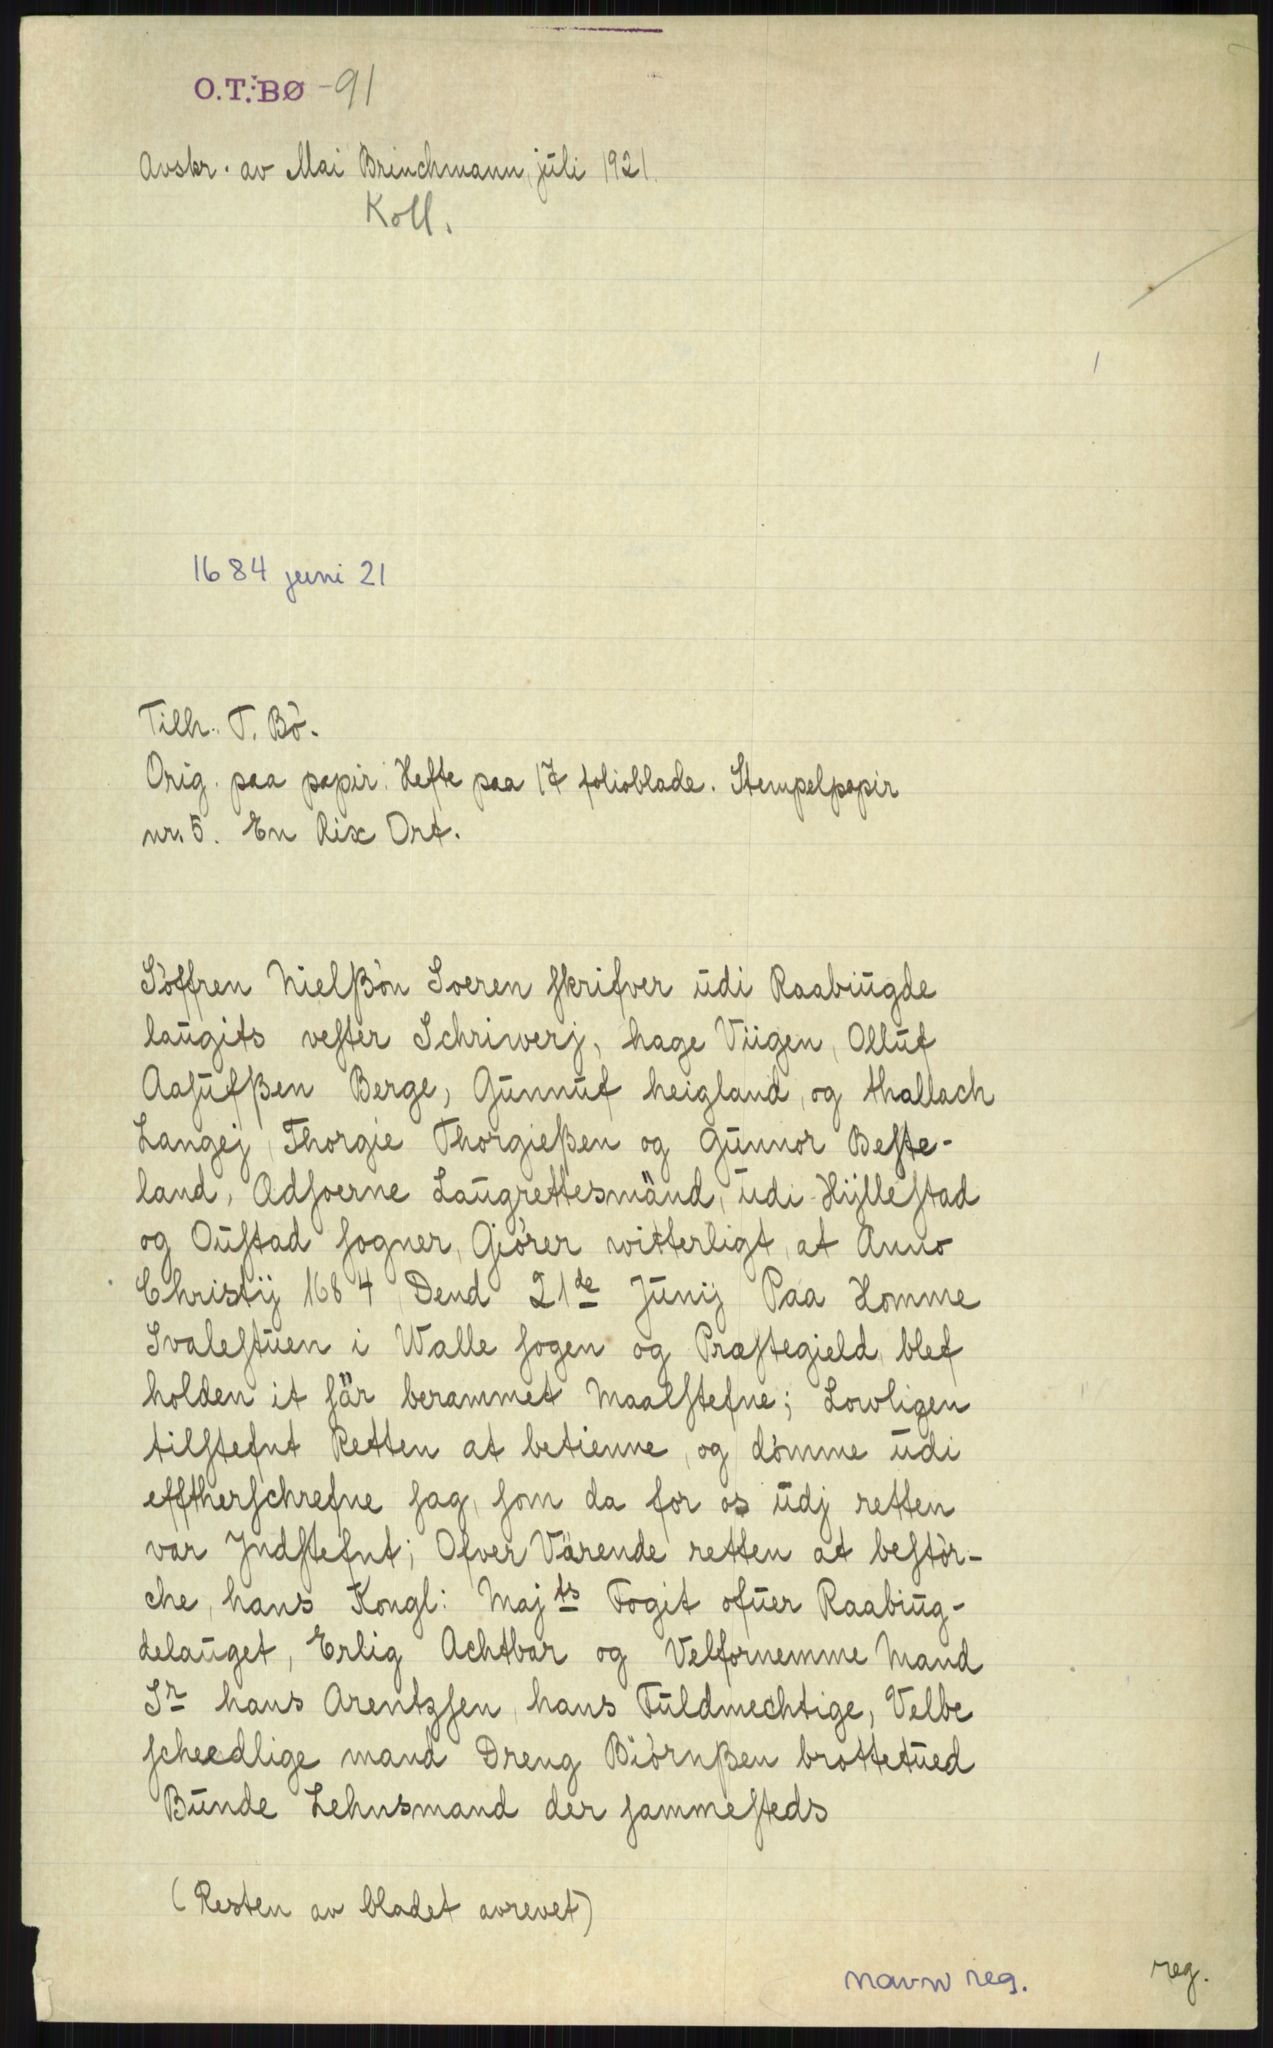 O.T. BØ - 91
Avskr. av Mai Brinchmann, juli 1921.
Koll.
1
1684 juni 21
Tilh. T. Bö.
Orig. paa papir. Hefte paa 17 folioblade. Stempelpapir
nr. 5. En Rix Ort.
Söffren Nielßön Soeren ſkrifver udi Raabiugde
laugits veſter Schriwerj, hage Viigen, Olluf
Aaſufßen Berge, Gunnuf heigland, og thallach
Langej, Thorgie Thorgießen og Gunnor Beſte-
land, Adſoerne Laugrettesmänd, udi Hÿlleſtad
og Ouſtad ſogner, Giörer witterligt, at Anno
Chriſtij 1684 Dend 21de Junij Paa Homme
Svaleſtuen i Walle ſogen og Præſtegield, blef
holden it ſär berammet Maalſtefne; Lowligen
tilſtefnt Retten at betienne, og dömme udi
efftherſchrefne ſag, ſom da for os udj retten
var Jndſtefnt; Ofver Värende retten at beſtör-
che, hans Kongl: Majts Fogit ofuer Raabiug-
delauget, Erlig Achtbar og Velfornemme Mand
Sr hans Arentzſen, hans Fuldmechtige, Velbe
ſcheedlige mand Dreng Biörnßen brottetued
Bunde Lehnsmand der ſammeſteds
(Resten av bladet avrevet)
navn reg.
reg.